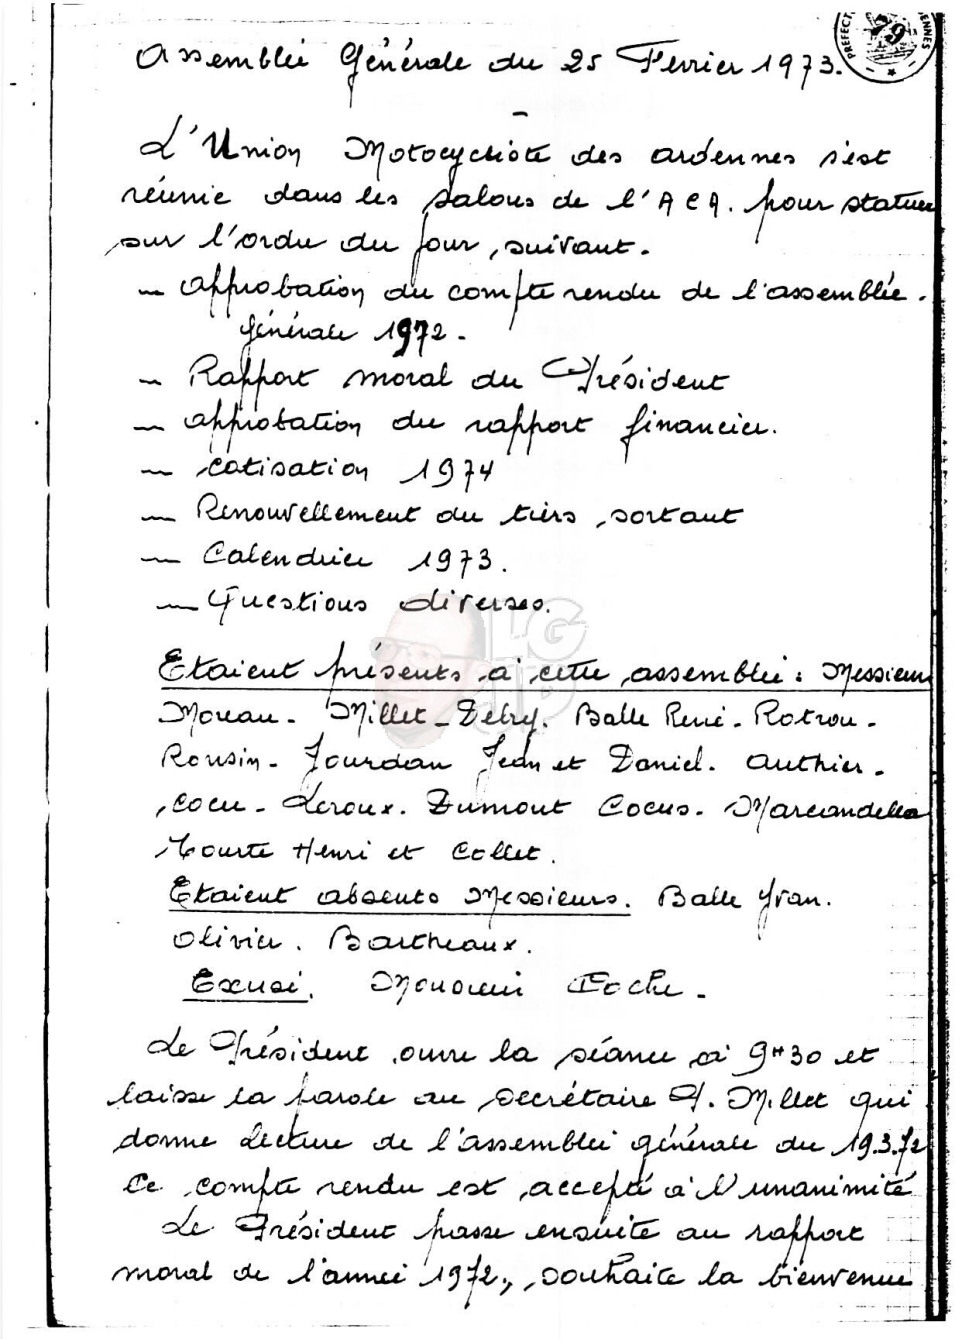 PREFECT ENNES
79
Assemblée Générale du 25 Fevrier 1973.
L'Union Motocycliste des ardennes s'est
réunie dans les salons de l'ACA. pour statuer
sur l'ordre du jour, suivant.
- approbation du compte rendu de l'assemblée.
générale 1972.
- Rapport moral du Président
- approbation du rapport financier.
- cotisation 1974
- Renouvellement du tiers sortant
- Calendrier 1973.
- Questions diverses.
LG
Etaient présents à cette assemblée : Messieurs
Moreau. Millet - Debry. Balle René. Rotrou.
Rousin. Jourdan Jean et Daniel. Authier.
Cocu. Leroux. Dumont Cocus. Marcandella
Tourte Henri et Collet.
Etaient absents Messieurs. Balle Yvan.
Olivier. Bartheaux.
Exusé. Monsieur Foche.
Le Président ouvre la séance à 9H30 et
laisse la parole au secrétaire Y. Millet qui
donne lecture de l'assemblée générale du 19.3.72
Ce compte rendu est accepté à l'unanimité
Le Président passe ensuite au rapport
moral de l'année 1972, souhaite la bienvenue